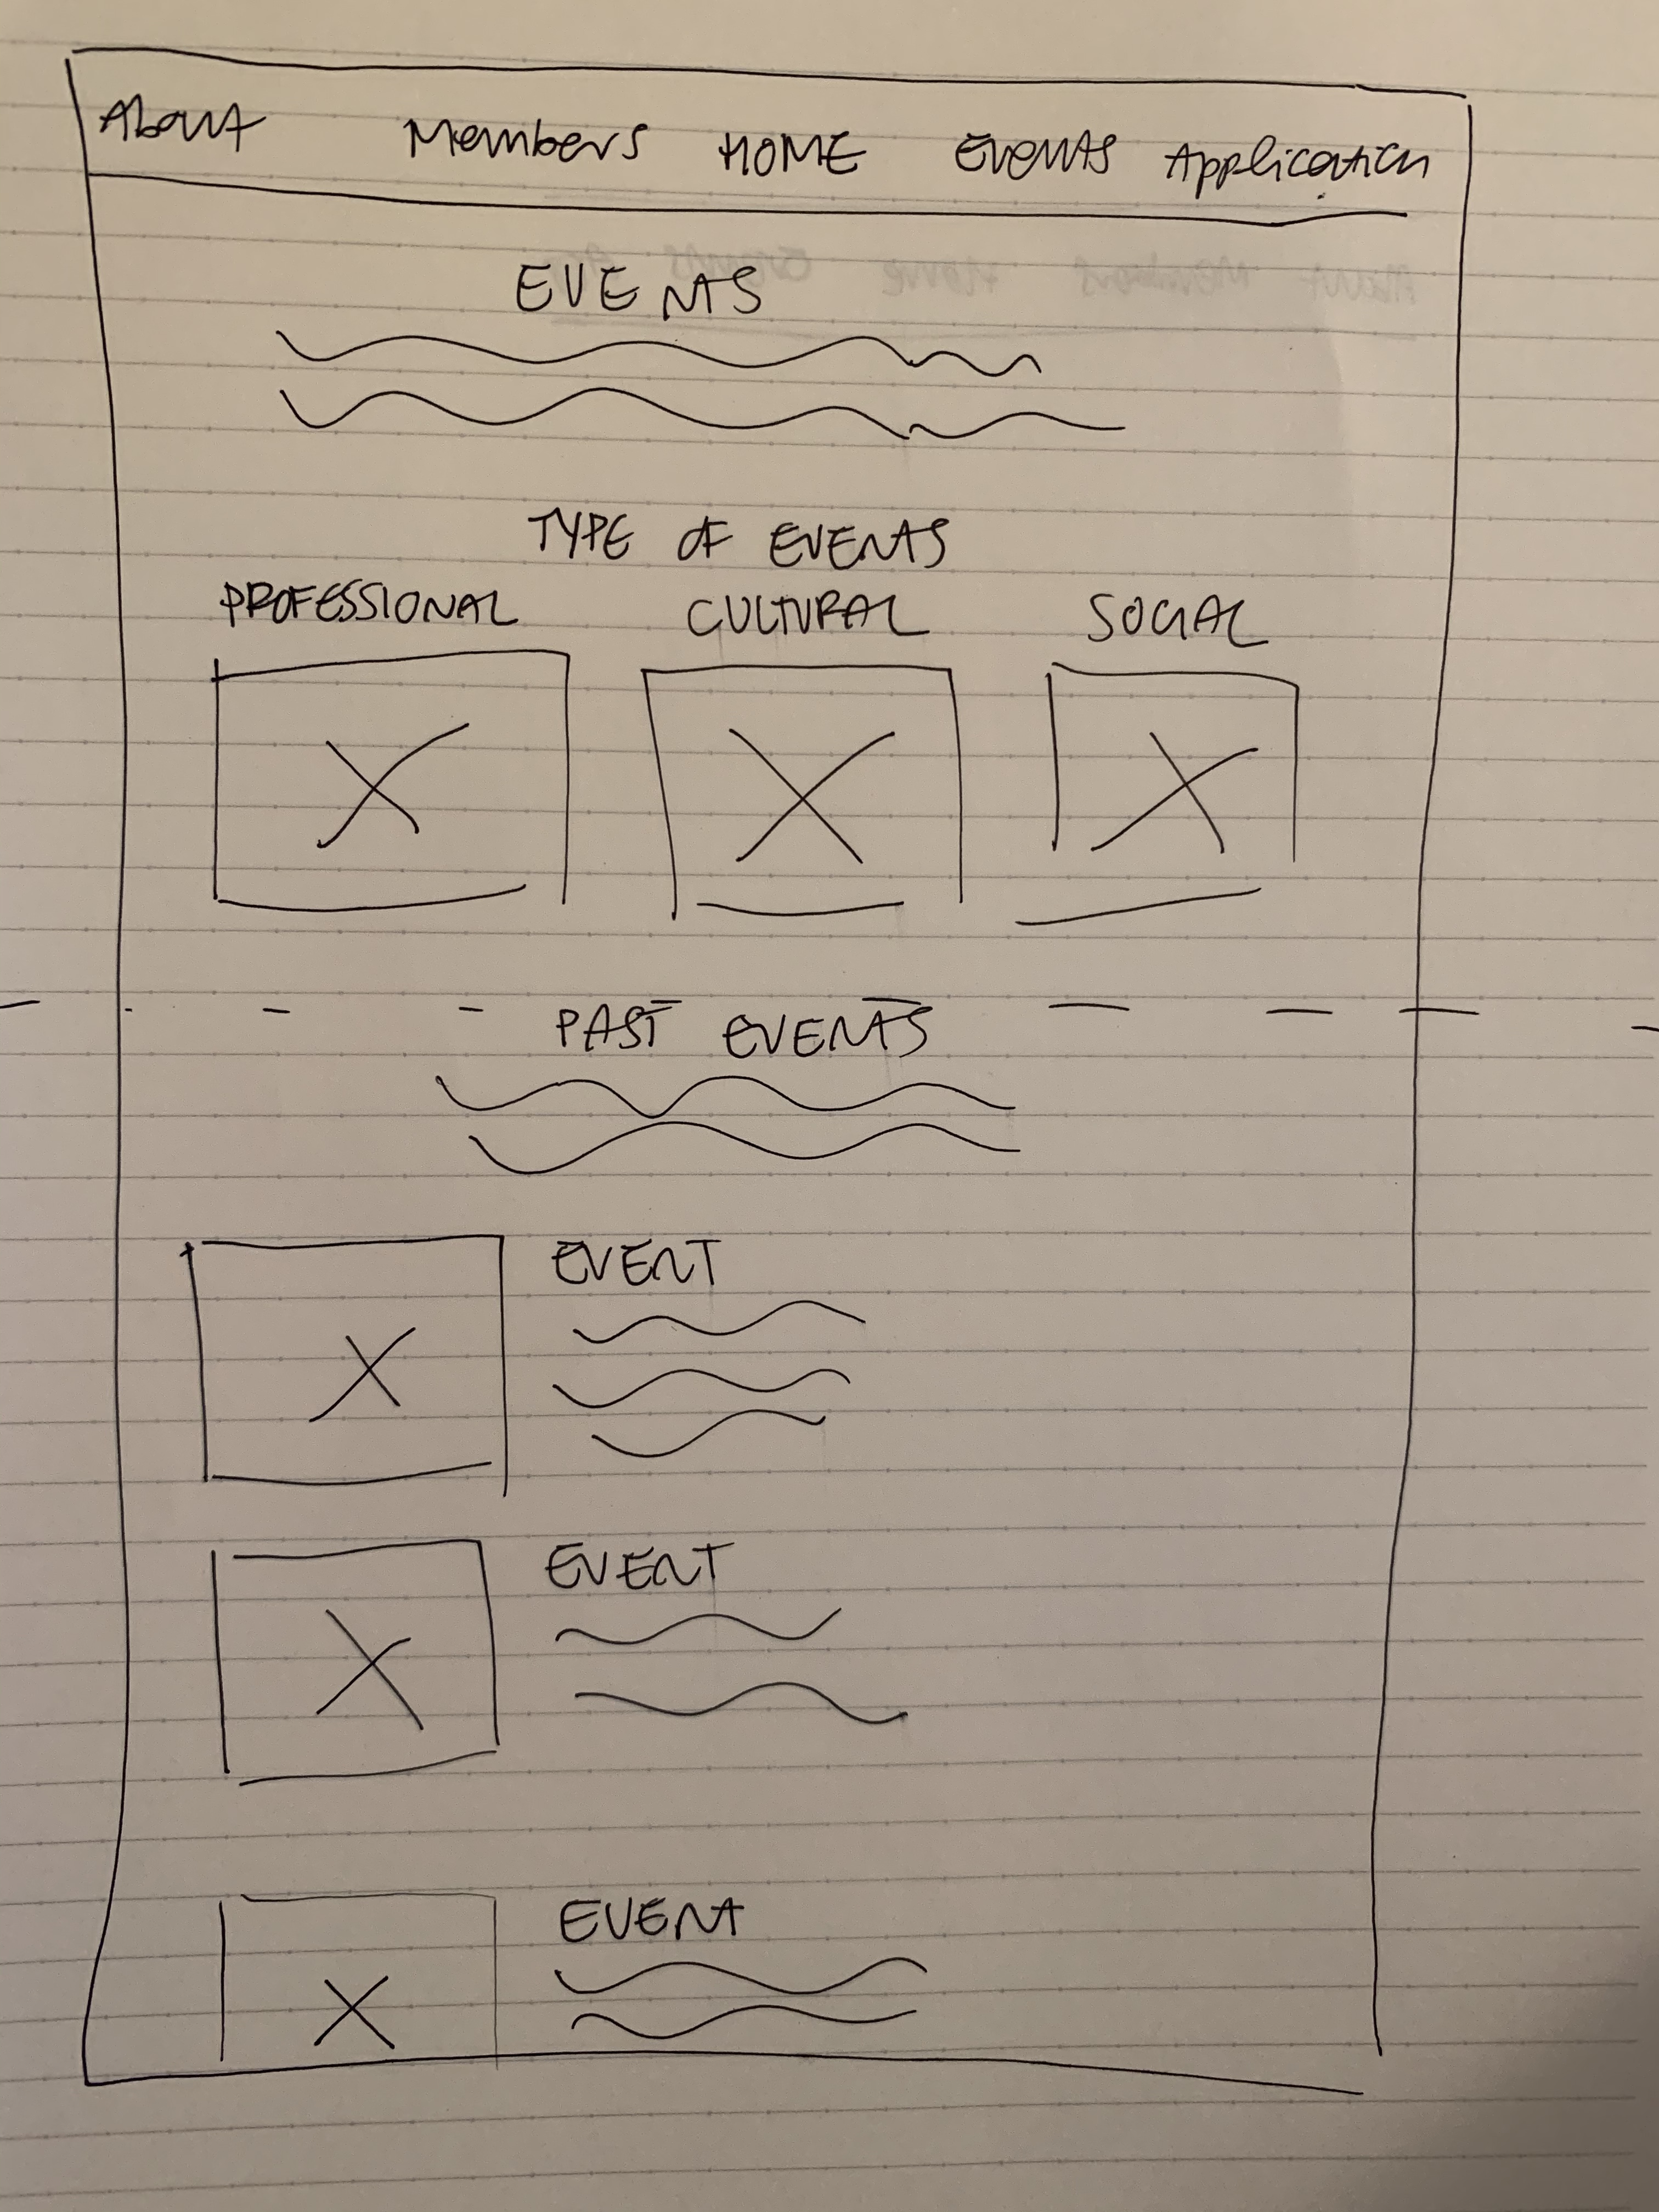 About Members HOME Events Application
EVENTS
TYPE OF EVENTS
PROFESSIONAL CULTURAL SOCIAL
PAST EVENTS
EVENT
EVENT
EVENT